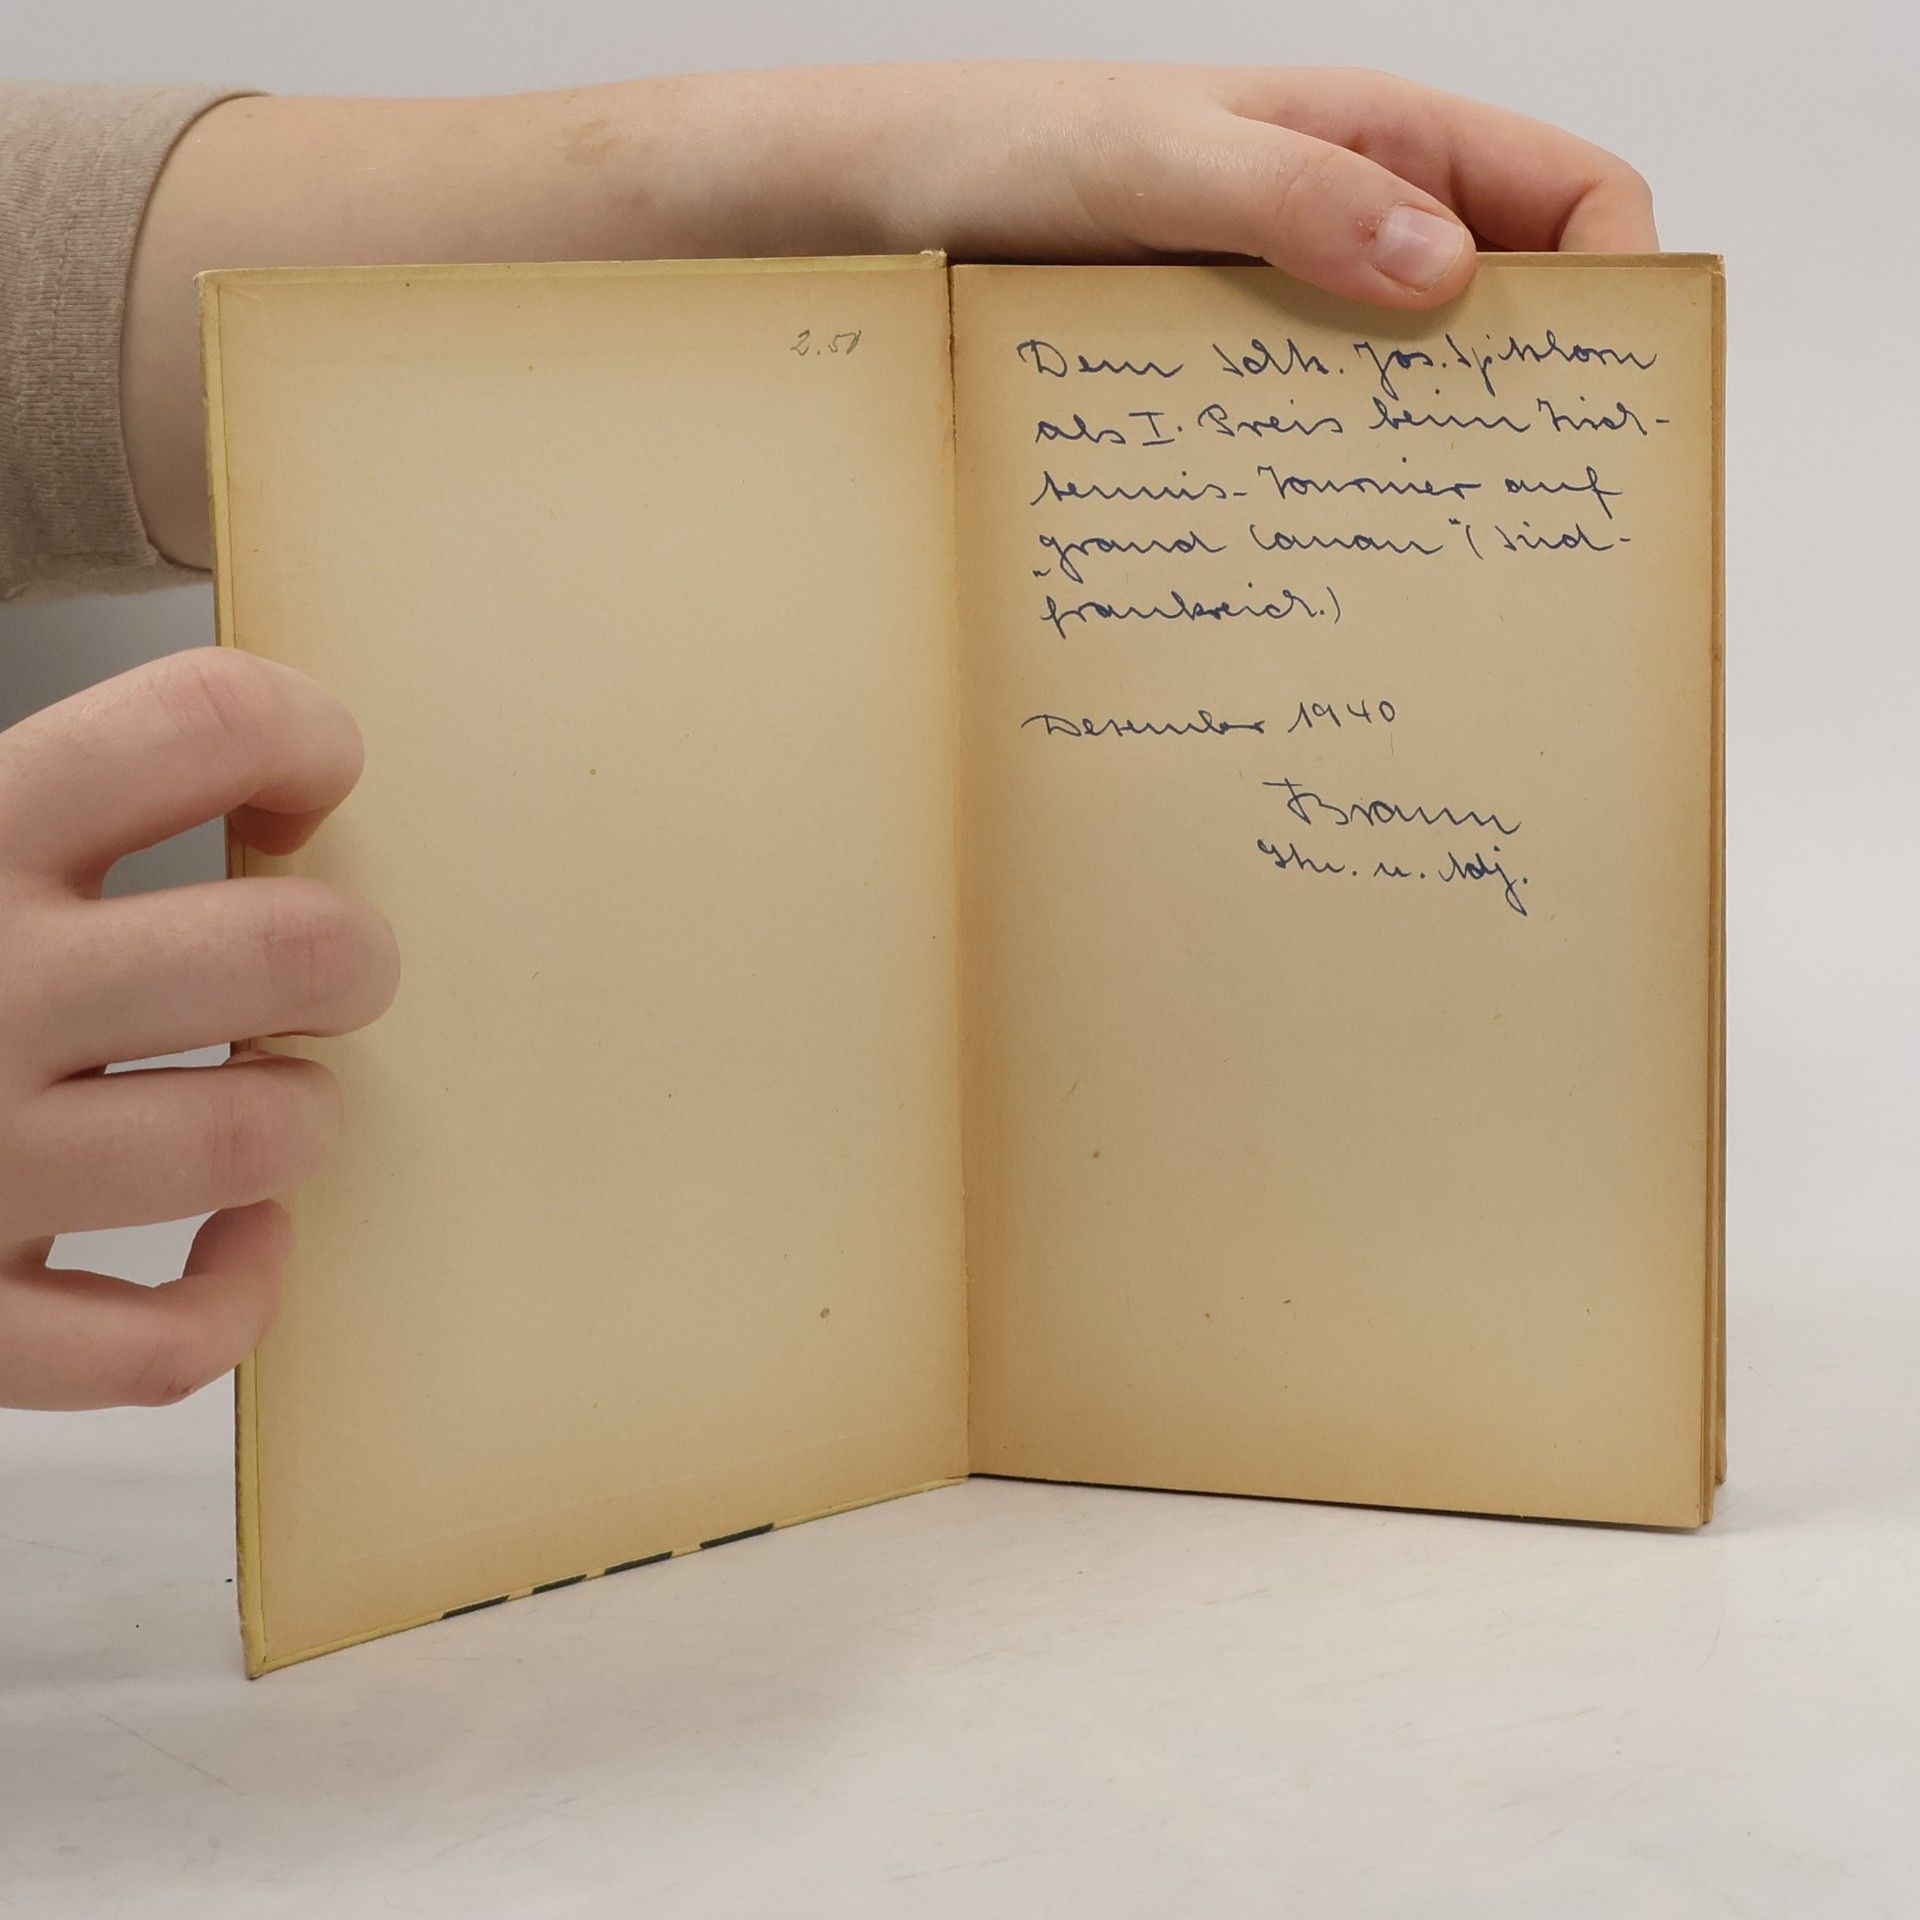 2.50
Dem Sdt. Jos. Spitzhorn
als I. Preis beim Tisch-
tennis-Tournier auf
„grand Canan" (Süd-
frankreich.)
Dezember 1940
Braun
u. Adj.